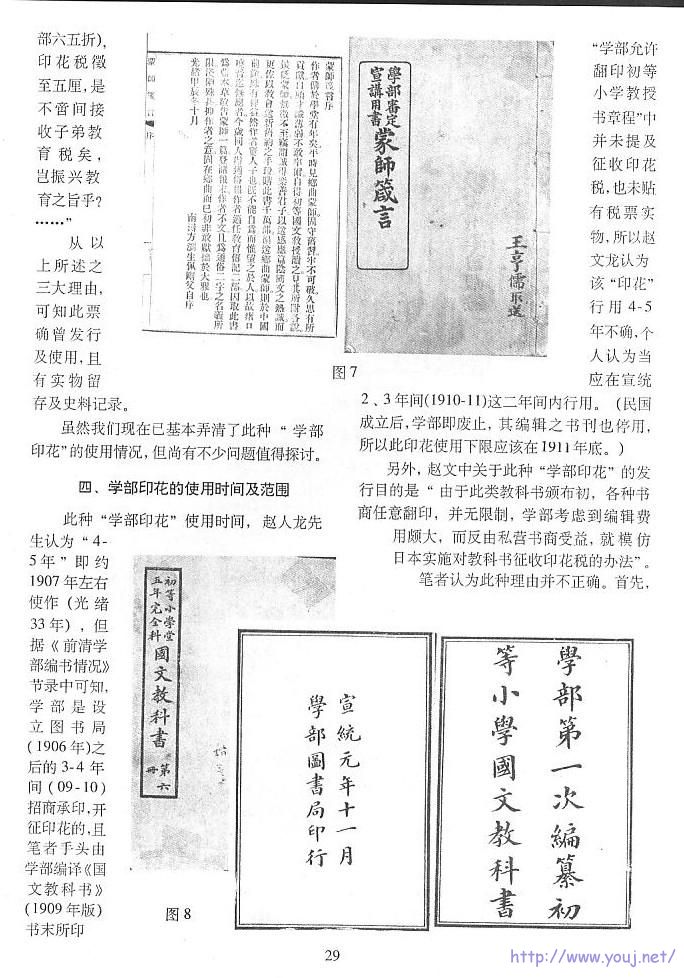 部六五折),
印花税徵
至五厘,是
不啻间接
收子弟教
育税矣,
岂振兴教
育之旨乎?
……”
从以
上所述之
三大理由,
可知此票
确曾发行
及使用,且
有实物留
存及史料记录。
虽然我们现在已基本弄清了此种“学部
印花”的使用情况,但尚有不少问题值得探讨。
四、学部印花的使用时间及范围
此种“学部印花”使用时间,赵人龙先
生认为“4-
5年”即约
1907年左右
使作(光绪
33年),但
据《前清学
部编书情况》
节录中可知,
学部是设
立图书局
(1906年)之
后的3-4年
间(09-10)
招商承印,开
征印花的,且
笔者手头由
学部编译《国
文教科书》
(1909年版)
书末所印
蒙師箴言序
學部審定
宣講用書
蒙師箴言
王亨儒取送
图7
“学部允许
翻印初等
小学教授
书章程”中
并未提及
征收印花
税,也未贴
有税票实
物,所以赵
文龙认为
该“印花”
行用4-5
年不确,个
人认为当
应在宣统
2、3年间(1910-11)这二年间内行用。(民国
成立后,学部即废止,其编辑之书刊也停用,
所以此印花使用下限应该在1911年底。)
另外,赵文中关于此种“学部印花”的发
行目的是“由于此类教科书颁布初,各种书
商任意翻印,并无限制,学部考虑到编辑费
用颇大,而反由私营书商受益,就模仿
日本实施对教科书征收印花税的办法”。
笔者认为此种理由并不正确。首先,
初等小學堂
五年完全科
國文教科書
第六冊
图8
學部第一次編纂初
等小學國文教科書
宣統元年十一月
學部圖書局印行
29
http://www.youj.net/